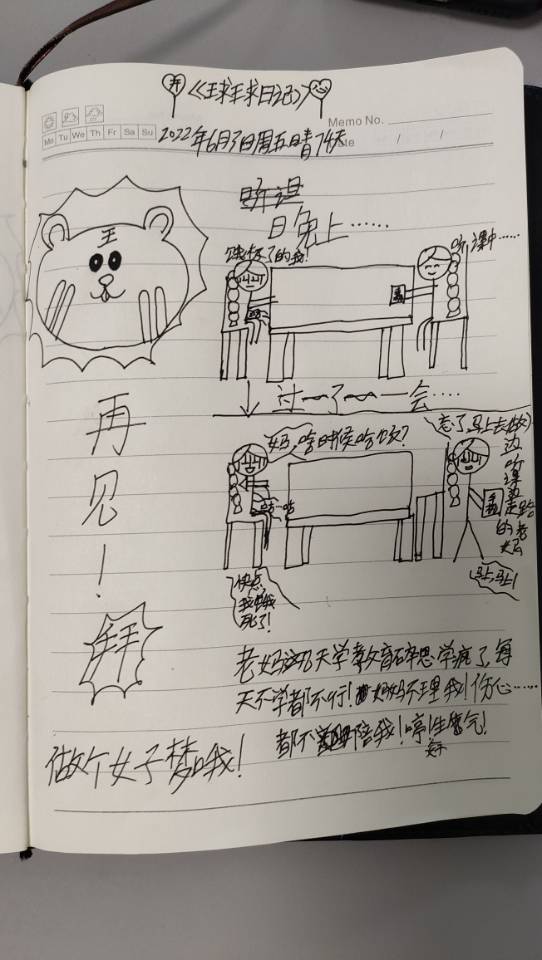 《球球日记》
Memo No.
Mo Tu We Th Fr Sa Su
Date / /
2022年6月3日周五日晴74天
王
听课
日晚上……
饿坏了的我！
听课中……
过～了～一会……
妈，啥时候吃饭？
忘了，马上去做
边听课边走路的老妈
咕咕
快点，我快饿死了！
马上，马上！
再见！
拜
老妈这几天学教育碎思学疯了，每
天不学都不行！妈妈不理我！伤心……
都不陪我！哼！生气！
做个女子梦哦！